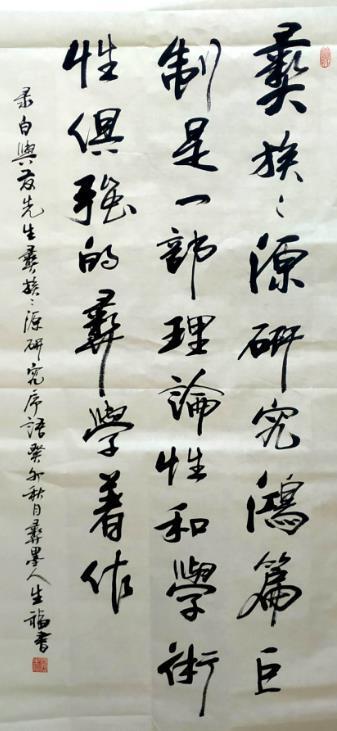 彝族〻源研究鴻篇巨
制是一部理論性和學術
性俱强的彝學著作
录白興发先生彝族〻源研究序語癸卯秋月彝墨人生福書